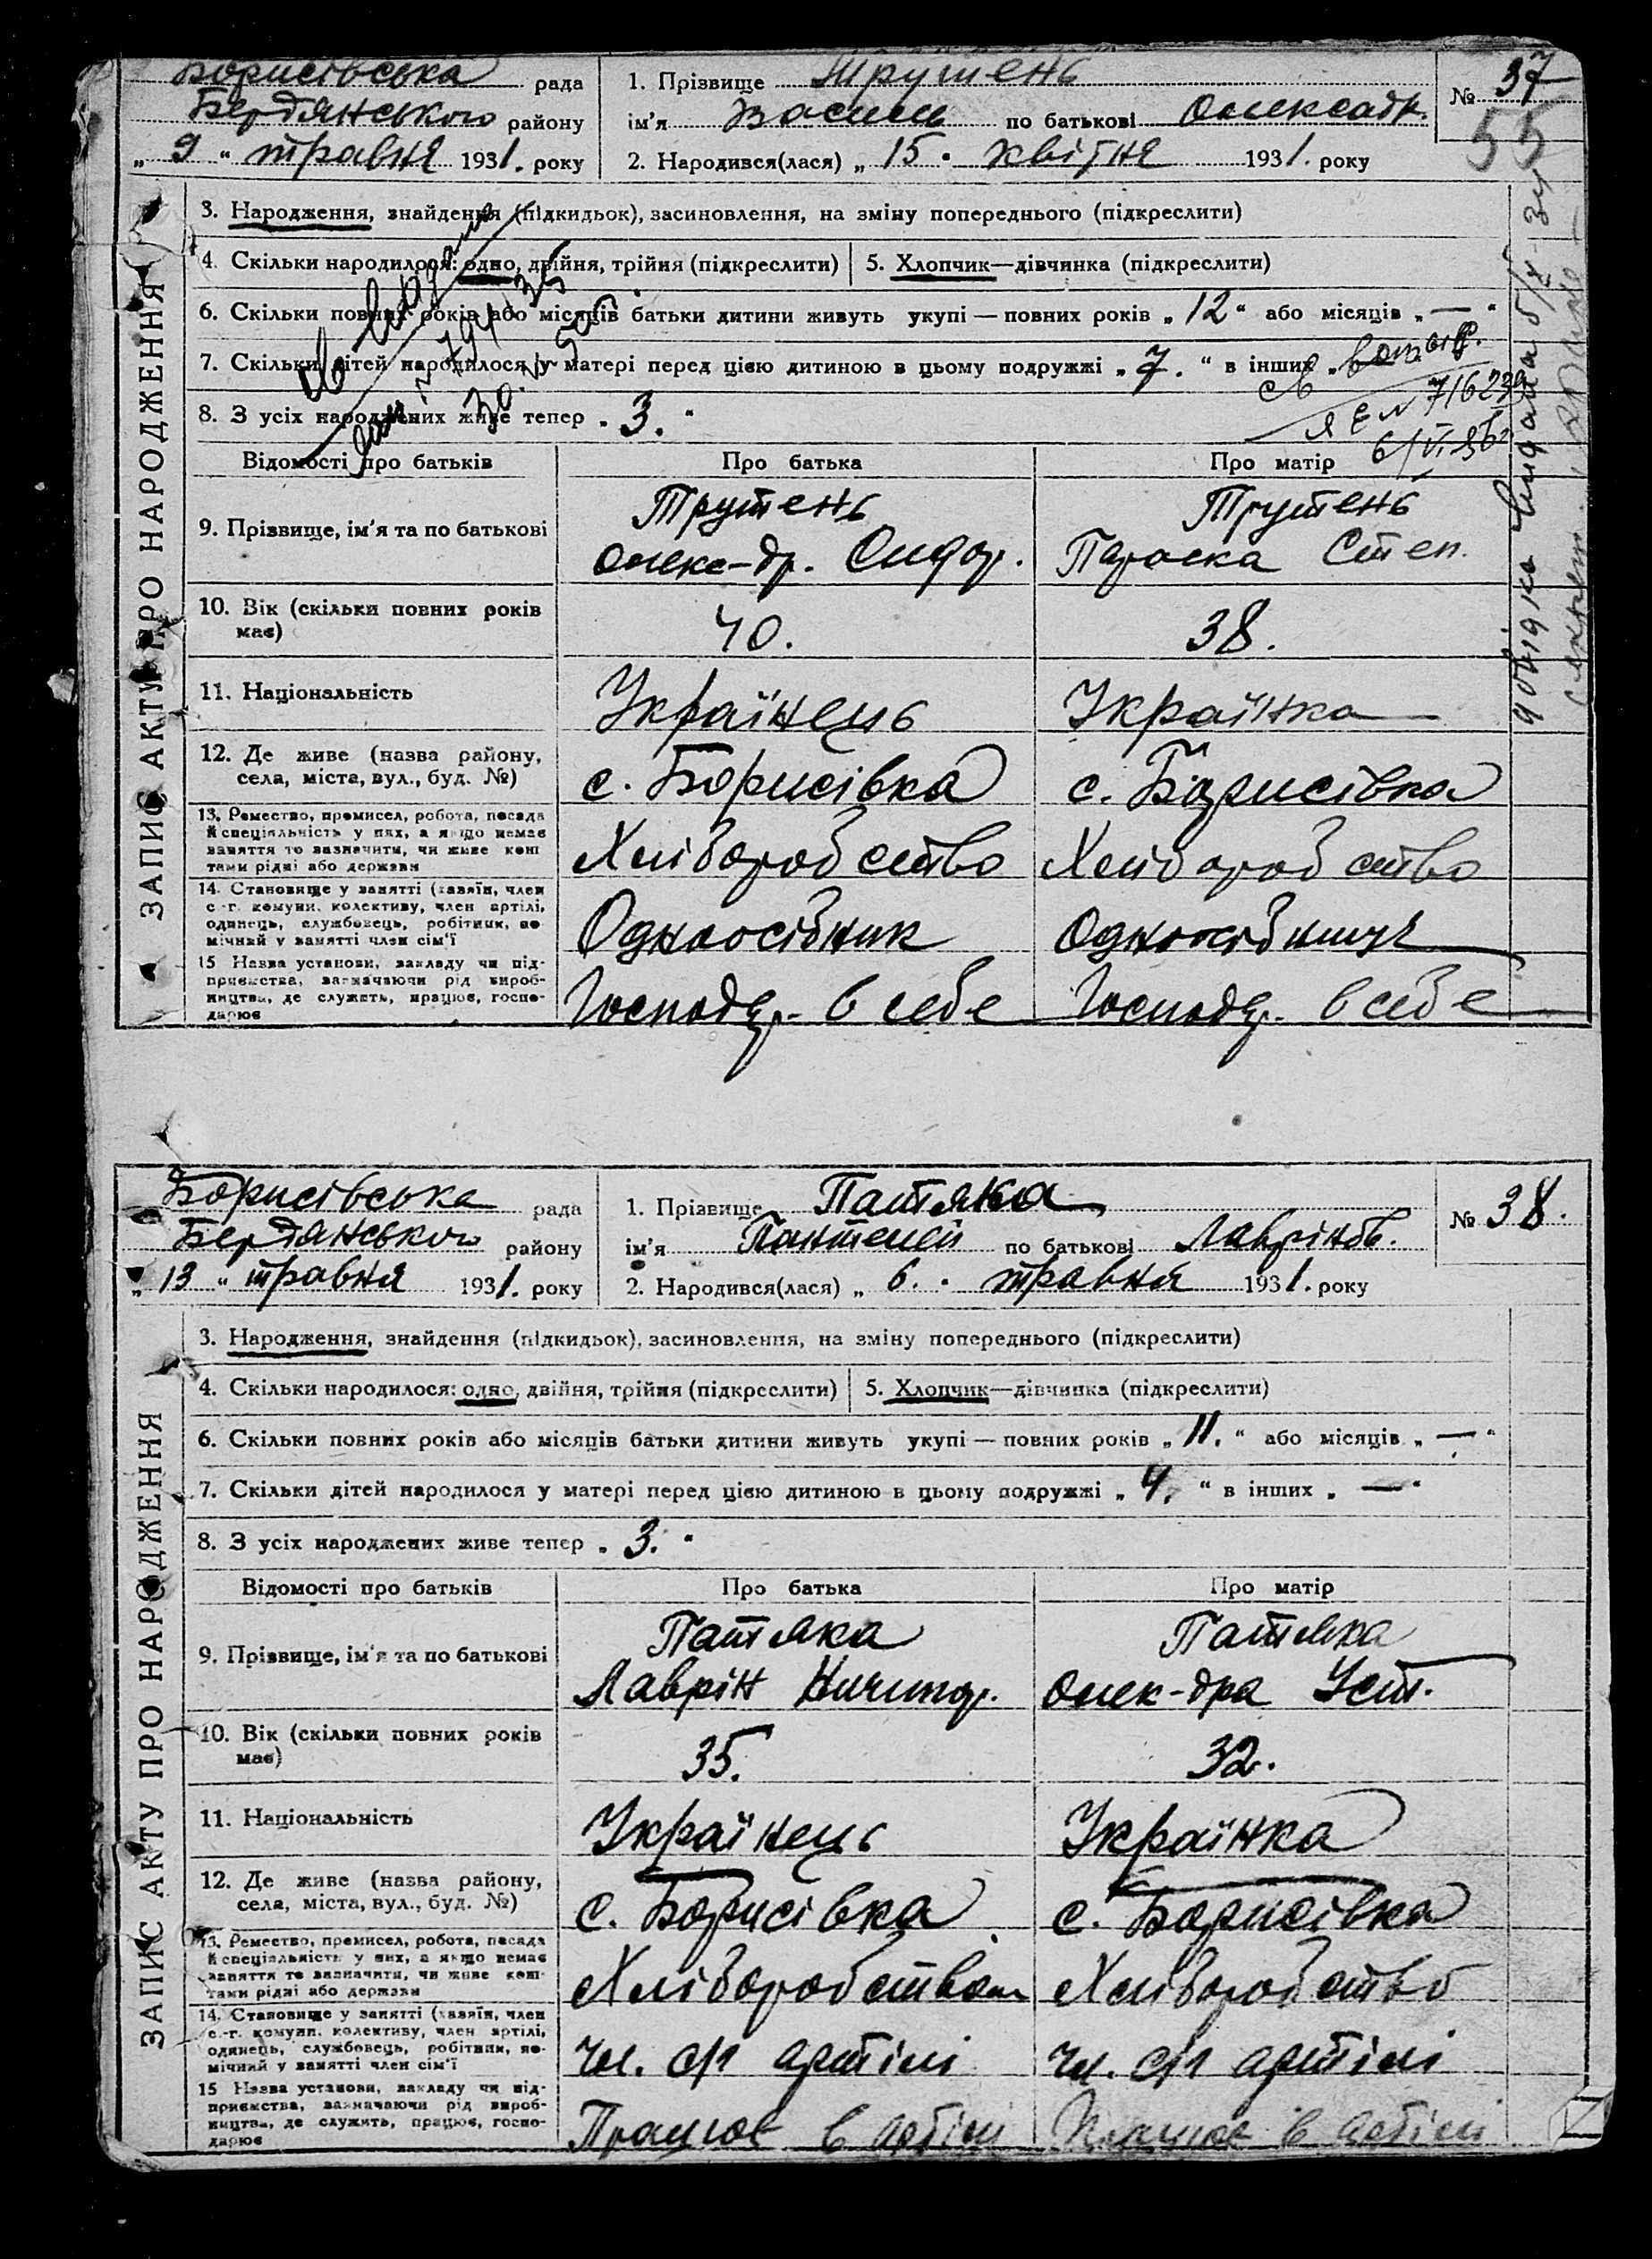 Борисівська рада
Бердянського району
„ 9 “ травня 1931. року
1. Прізвище Трутень
ім'я Василь по батькові Олександр.
2. Народився(лася) „ 15 “ квітня 1931. року
№ 37
55
ЗАПИС АКТУ ПРО НАРОДЖЕННЯ
3. Народження, знайдення (підкидьок), засиновлення, на зміну попереднього (підкреслити)
4. Скільки народилося: одно, двійня, трійня (підкреслити)
5. Хлопчик—дівчинка (підкреслити)
6. Скільки повних років або місяців батьки дитини живуть укупі — повних років „ 12 “ або місяців „ — “
7. Скільки дітей народилося у матері перед цією дитиною в цьому подружжі „ 7. “ в інших „
8. З усіх народжених живе тепер „ 3. “
Відомості про батьків
Про батька
Про матір
9. Прізвище, ім'я та по батькові
Трутень
Олекс-др. Сидор.
Трутень
Параска Степ.
10. Вік (скільки повних років має)
40.
38.
11. Національність
Українець
Українка
12. Де живе (назва району, села, міста, вул., буд. №)
с. Борисівка
с. Борисівка
13. Ремество, промисел, робота, посада й спеціяльність у них, а якщо немає заняття то зазначити, чи живе коштами рідні або держави
Хліборобство
Хліборобство
14. Становище у занятті (хазяїн, член с.-г. комуни, колективу, член артілі, одинець, службовець, робітник, помічний у занятті член сім'ї
Одноосібник
Одноосібниця
15 Назва установи, закладу чи підприємства, зазначаючи рід виробництва, де служить, працює, господарює
Господар. в себе
Господар. в себе
Борисівська рада
Бердянського району
„ 13 “ травня 1931. року
1. Прізвище Патяка
ім'я Пантелей по батькові Лаврінов.
2. Народився(лася) „ 6. “ травня 1931. року
№ 38.
ЗАПИС АКТУ ПРО НАРОДЖЕННЯ
3. Народження, знайдення (підкидьок), засиновлення, на зміну попереднього (підкреслити)
4. Скільки народилося: одно, двійня, трійня (підкреслити)
5. Хлопчик—дівчинка (підкреслити)
6. Скільки повних років або місяців батьки дитини живуть укупі — повних років „ 11. “ або місяців „ — “
7. Скільки дітей народилося у матері перед цією дитиною в цьому подружжі „ 4. “ в інших „ — “
8. З усіх народжених живе тепер „ 3. “
Відомості про батьків
Про батька
Про матір
9. Прізвище, ім'я та по батькові
Патяка
Лаврін Ничипор.
Патяка
Олек-дра Уст.
10. Вік (скільки повних років має)
35.
32.
11. Національність
Українець
Українка
12. Де живе (назва району, села, міста, вул., буд. №)
с. Борисівка
с. Борисівка
13. Ремество, промисел, робота, посада й спеціяльність у них, а якщо немає заняття то зазначити, чи живе коштами рідні або держави
Хліборобством
Хліборобство
14. Становище у занятті (хазяїн, член с.-г. комуни, колективу, член артілі, одинець, службовець, робітник, помічний у занятті член сім'ї
чл. с/г артілі
чл. с/г артілі
15 Назва установи, закладу чи підприємства, зазначаючи рід виробництва, де служить, працює, господарює
Працює в артілі
Працює в артілі